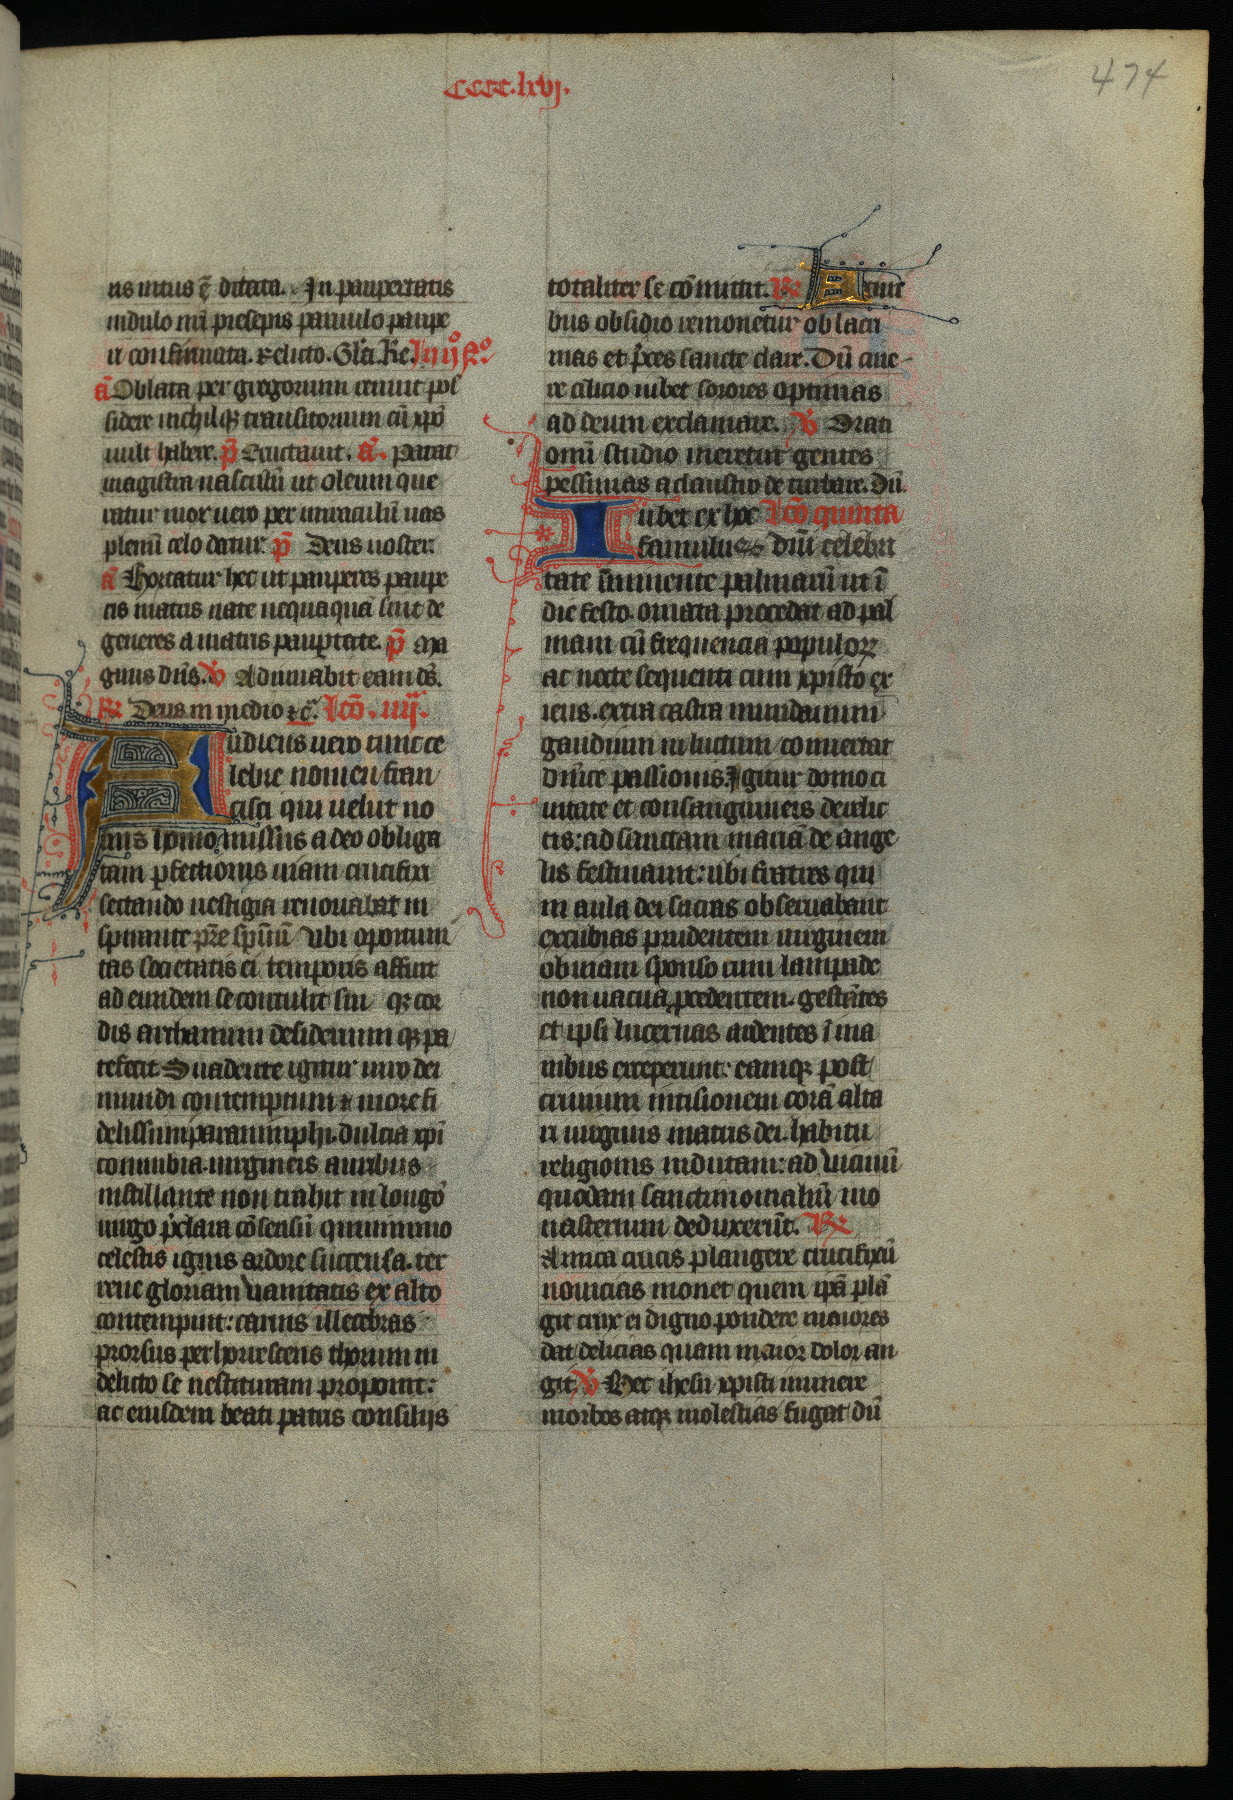 cccc.lxvj.
474
us intus ē ditata. In paupertatis
nidulo mā presepis paruulo paupe
ri confirmata. relicto. Glīa. Re. In ijº Nº
a Oblata per gregorium renuit pos
sidere nichilqꝫ transitorium cū xp̄o
uult habere. p̄ Eructauit. a. Parat
magistra uascusū ut oleum que
ratur mox uero per miraculū uas
plenū celo datur. p̄ Deus noster.
a Hortatur hec ut pauperes paupe
ris matris nate nequaquā sint de
generes a matris paupertate. p̄ Ma
gnus dn̄s. v̄ Adiuuabit eam ds̄.
R Deus in medio ⁊c̄. Lcō. iiij.
Audiens uero tunc ce
lebre nomen fran
cisci qui uelut no
uus homo missus a deo obliga
tam perfectionis uiam crucifixi
sectando uestigia renouabat in
spirante pr̄e spirituū ubi oportuni
tas societatis ei temporis affuit
ad eundem se contulit sui qꝫ cor
dis archanum desiderium qꝫ pa
tefecit Suadente igitur uiro dei
mundi contemptum ⁊ more fi
delissimi paranimphi. dulcia xp̄i
connubia. uirgineis auribus
instillante non trahit in longū
uirgo p̄clara cōsensū quinimmo
celestis ignis ardore succensa. ter
rene gloriam vanitatis ex alto
contempsit: carnis illecebras
prorsus perhorrescens thorum in
delicto se nescituram proponit:
ac eiusdem beati patris consilijs
totaliter se cōmittit. R Exinē
bus obsidio remouetur ob lacri
mas et p̄ces sancte clare. Dū cine-
re cilicio iubet sorores optimas
ad deum exclamare. v̄ Orati
omū studio meretur gentes
pessimas a claustro de turbare. Dū.
Iubet ex hoc Lcō quinta
famulus dn̄i celebri
tate iminente palmarū ut ī
die festo. ornata procedat ad pal
mam cū frequencia populorꝫ
ac nocte sequenti cum xpisto ex
iens. extra castra mundanum
gaudium in luctum conuertat
dn̄ice passionis. Igitur domo ci
uitate et consanguineis derelic
tis: ad sanctam mariā de ange
lis festinauit: ubi fratres qui
in aula dei sacras obseruabant
excubias prudentem uirginem
obuiam sponso cum lampade
non uacua, procedentem. gestātes
et ipsi lucernas ardentes ī ma
nibus exceperunt: eamqꝫ post
crinium incisionem corā alta
ri uirginis matris dei. habitu
religionis indutam: ad vicinū
quodam sanctimonialiū mo
nasterium deduxerūt. R
Amica crucis plangere crucifixū
nouicias monet quem ipā plā
git crux ei digno pondere maiores
dat delicias quam maior dolor an
git. v̄ Hec ihesu xpisti munere
morbos atqꝫ molestias fugat dū